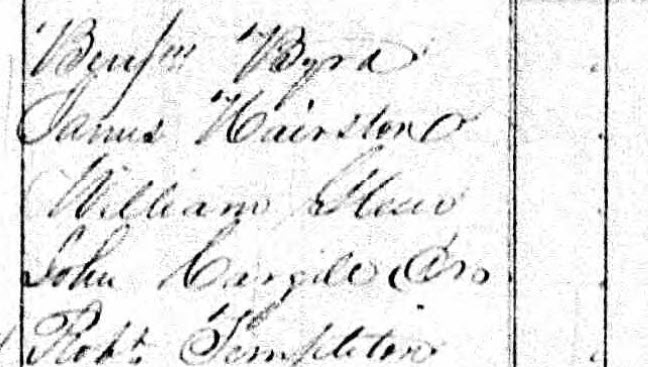 Benjm Byrd
James Hairston
William
John Cargile Sr
Robt Templeton